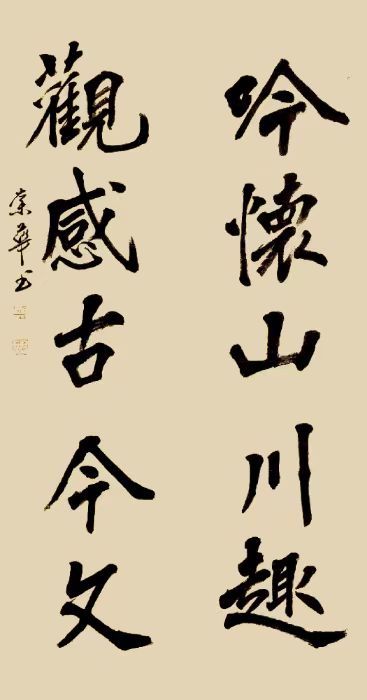 吟懷山川趣
觀感古今文
崇華书